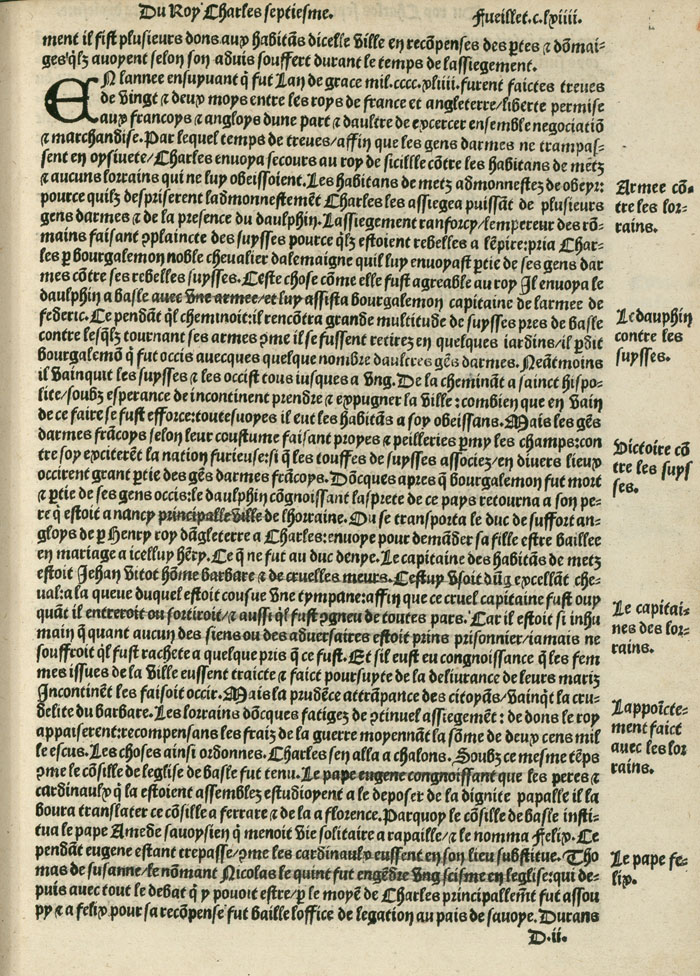 Du Roy Charles septiesme.
Fueillet.c.lxiiii.
ment il fist plusieurs dons aux habitãs dicelle ville en recõpenses des ꝑtes ⁊ dõmai-
ges q̃lz auoyent selon son aduis souffert durant le temps de lassiegement.
EN lannee ensuyuant q̃ fut Lan de grace mil.cccc.xliiii.furent faictes treues
de vingt ⁊ deux moys entre les roys de france et angleterre/liberte permise
aux francoys ⁊ angloys dune part ⁊ daultre de excercer ensemble negociatiõ
⁊ marchandise. Par lequel temps de treues/affin que les gens darmes ne trampas-
sent en oysiuete/Charles enuoya secours au roy de sicille cõtre les habitans de metz
⁊ aucuns lorrains qui ne luy obeissoient. Les habitans de metz admonnestez de obeyr:
pource quilz despriserent ladmonnestemẽt Charles les assiegea puissãt de plusieurs
gens darmes ⁊ de la presence du daulphin. Lassiegement ranforcy/lempereur des rõ-
mains faisant ꝯplaincte des suysses pource q̃lz estoient rebelles a lẽpire:pria Char-
les ꝑ bourgalemon noble cheualier dalemaigne quil luy enuoyast ꝑtie de ses gens dar
mes cõtre ses rebelles suysses. Ceste chose cõme elle fust agreable au roy Il enuoya le
daulphin a basle auec vne armee/et luy assista bourgalemon capitaine de larmee de
federic. Ce pendãt q̃l cheminoit:il rencõtra grande multitude de suysses pres de basle
contre lesq̃lz tournant ses armes ꝯme il se fussent retirez en quelques iardins/il ꝑdit
bourgalemõ q̃ fut occis auecques quelque nombre daultres gẽs darmes. Neãtmoins
il vainquit les suysses ⁊ les occist tous iusques a vng. De la cheminãt a sainct hispo-
lite/soubz esperance de incontinent prendre ⁊ expugner la ville : combien que en vain
de ce faire se fust efforce:toutesuoyes il eut les habitãs a soy obeissans. Mais les gẽs
darmes frãcoys selon leur coustume faisant proyes ⁊ peilleries ꝑmy les champs:con
tre soy exciterẽt la nation furieuse:si q̃ les touffes de suysses associez/en diuers lieux
occirent grant ꝑtie des gẽs darmes frãcoys. Dõcques apres q̃ bourgalemon fut mort
⁊ ꝑtie de ses gens occis:le daulphin cõgnoissant lasprete de ce pays retourna a son pe-
re q̃ estoit a nancy principalle ville de lhorraine. Ou se transporta le duc de suffort an-
gloys de ꝑ Henry roy dãgleterre a Charles:enuoye pour demãder sa fille estre baillee
en mariage a icelluy hẽry. Ce q̃ ne fut au duc denye. Le capitaine des habitãs de metz
estoit Jehan vitot hõme barbare ⁊ de cruelles meurs. Cestuy vsoit dũg excellãt che-
ual:a la queue duquel estoit cousue vne tympane:affin que ce cruel capitaine fust ouy
quãt il entreroit ou sortiroit/⁊ aussi q̃l fust ꝯgneu de toutes pars. Car il estoit si inhu
main q̃ quant aucun des siens ou des aduersaires estoit prins prisonnier/iamais ne
souffroit q̃l fust rachete a quelque pris q̃ ce fust. Et sil eust eu congnoissance q̃ les fem
mes issues de la ville eussent traicte ⁊ faict poursuyte de la deliurance de leurs mariz
Incontinẽt les faisoit occir. Mais la prudẽce attrãpance des citoyãs/vainqt la cru-
delite du barbare. Les lorrains dõcques fatigez de ꝯtinuel assiegemẽt : de dons le roy
appaiserent:recompensans les fraiz de la guerre moyennãt la sõme de deux cens mil
le escus. Les choses ainsi ordonnes. Charles sen alla a chalons. Soubz ce mesme tẽps
ꝯme le cõsille de leglise de basle fut tenu. Le pape eugene congnoissant que les peres ⁊
cardinaulx q̃ la estoient assemblez estudioyent a le deposer de la dignite papalle il la
boura translater ce cõsille a ferrare ⁊ de la a florence. Parquoy le cõsille de basle insti-
tua le pape Amede sauoysien q̃ menoit vie solitaire a rapaille/⁊ le nomma Felix. Ce
pendãt eugene estant trepasse/ꝯme les cardinaulx eussent en son lieu substitue. Tho
mas de susanne/le nõmant Nicolas le quint fut engẽdre vng scisme en leglise:qui de-
puis auec tout le debat q̃ y pouoit estre/ꝑ le moyẽ de Charles principallemẽt fut assou
py ⁊ a felix pour sa recõpense fut baille loffice de legation au pais de sauoye. Durans
D.ii.
Armee cõ-
tre les lor-
rains.
Le dauphin
contre les
suysses.
Victoire cõ
tre les suys
ses.
Le capitai-
nes des lor-
rains.
Lappoicte-
ment faict
auec les lor
rains.
Le pape fe-
lix.